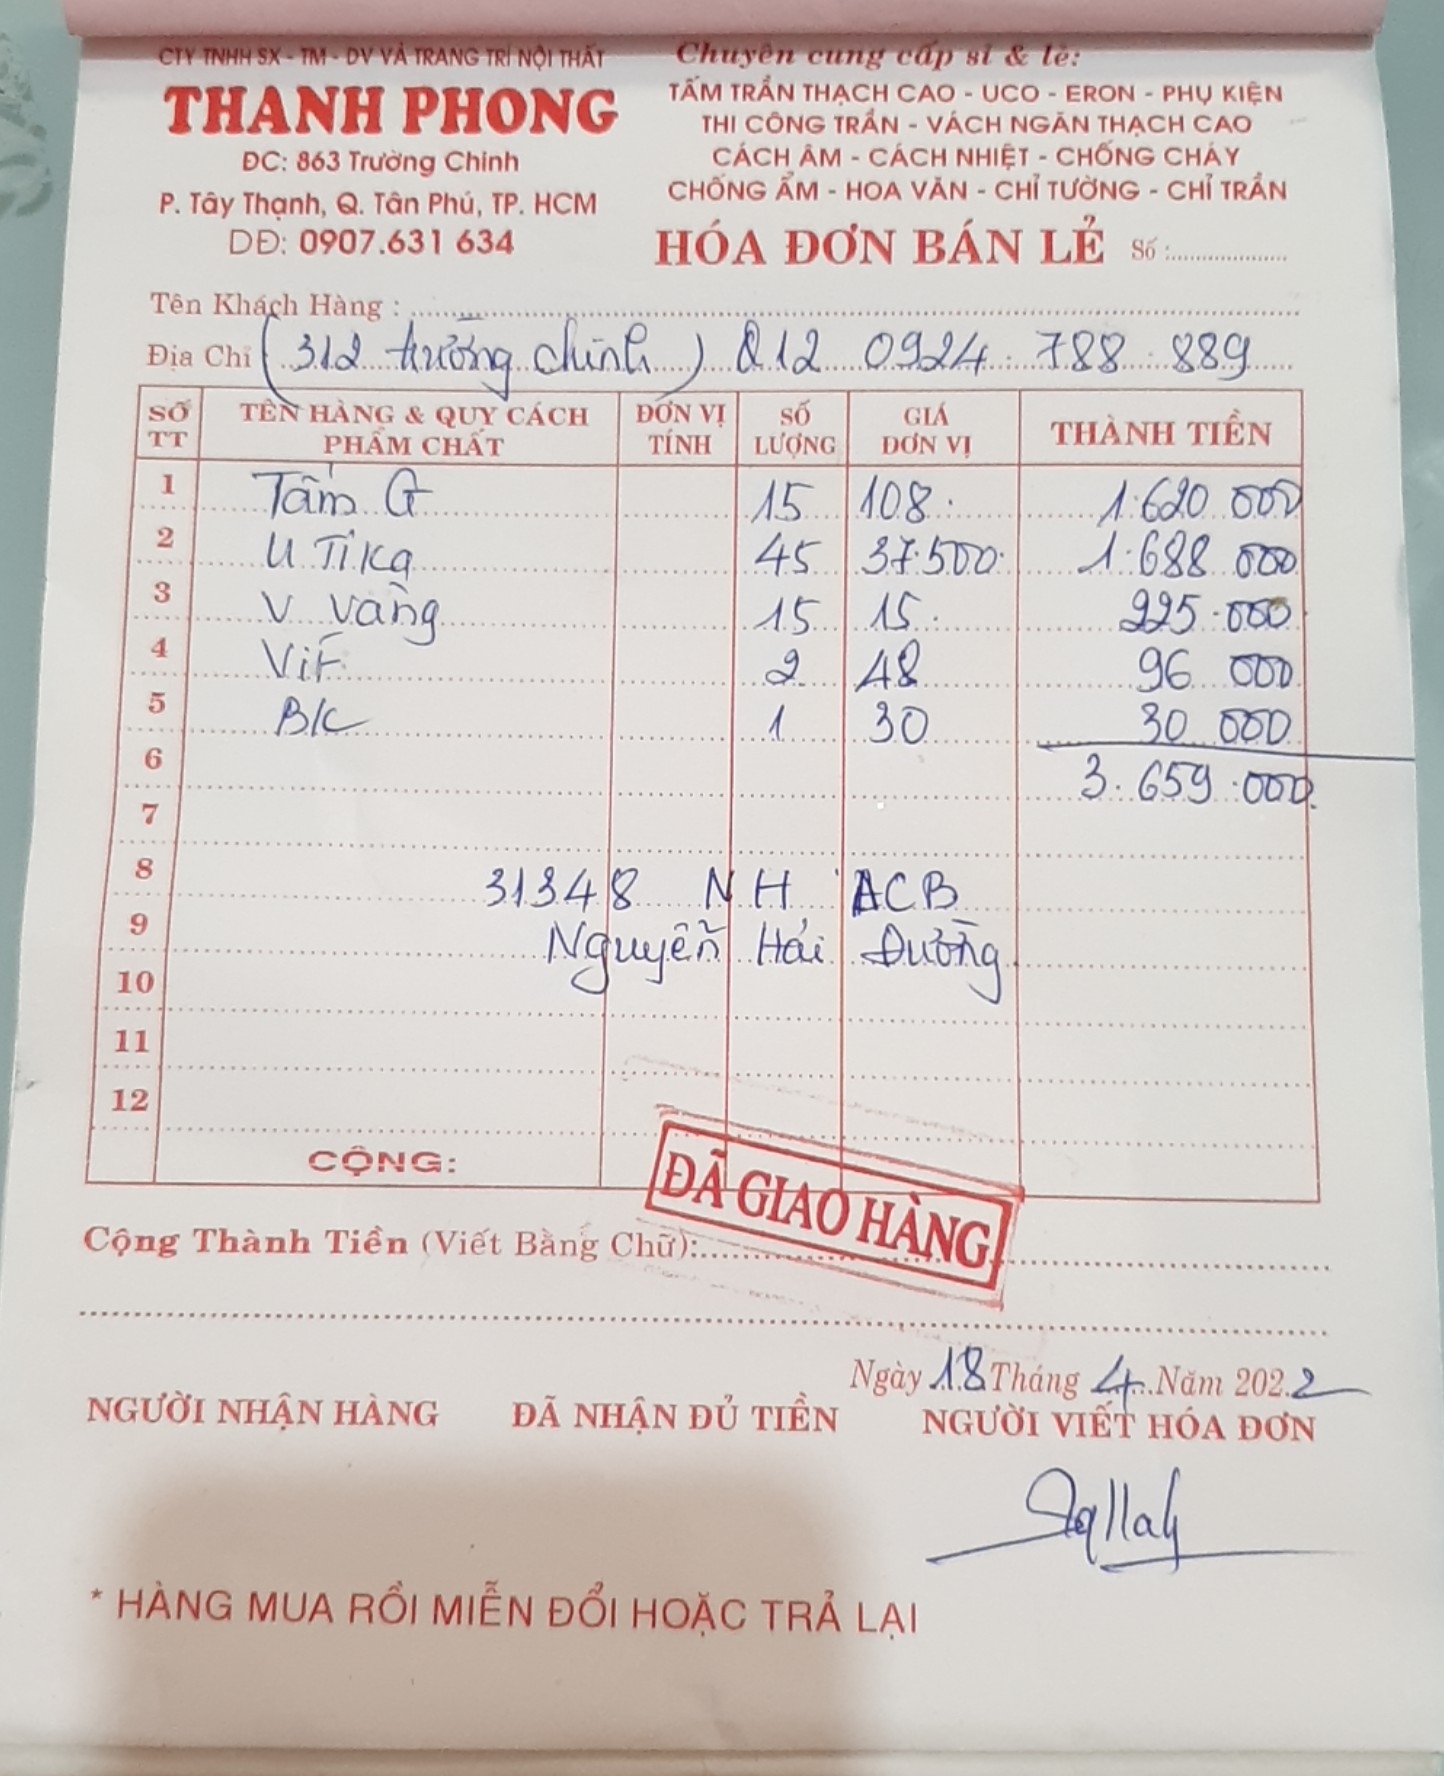 CTY TNHH SX - TM - DV VÀ TRANG TRÍ NỘI THẤT
THANH PHONG
ĐC: 863 Trường Chinh
P. Tây Thạnh, Q. Tân Phú, TP. HCM
DĐ: 0907.631 634
Chuyên cung cấp sỉ & lẻ:
TẤM TRẦN THẠCH CAO - UCO - ERON - PHỤ KIỆN
THI CÔNG TRẦN - VÁCH NGĂN THẠCH CAO
CÁCH ÂM - CÁCH NHIỆT - CHỐNG CHÁY
CHỐNG ẨM - HOA VĂN - CHỈ TƯỜNG - CHỈ TRẦN
HÓA ĐƠN BÁN LẺ Số :
Tên Khách Hàng :
Địa Chỉ (312 trường chinh) Q12 0924 788 889
SỐ TT TÊN HÀNG & QUY CÁCH PHẨM CHẤT ĐƠN VỊ TÍNH SỐ LƯỢNG GIÁ ĐƠN VỊ THÀNH TIỀN
1 Tấm G 15 108. 1.620 000
2 U Tika 45 37.500. 1.688 000
3 V vàng 15 15. 225.000
4 Vít 2 48 96 000
5 B/c 1 30 30 000
6 3.659.000.
7
8 31348 NH ACB
9 Nguyễn Hải Đường
10
11
12
CỘNG:
ĐÃ GIAO HÀNG
Cộng Thành Tiền (Viết Bằng Chữ):
Ngày 18 Tháng 4 Năm 2022
NGƯỜI NHẬN HÀNG ĐÃ NHẬN ĐỦ TIỀN NGƯỜI VIẾT HÓA ĐƠN
* HÀNG MUA RỒI MIỄN ĐỔI HOẶC TRẢ LẠI